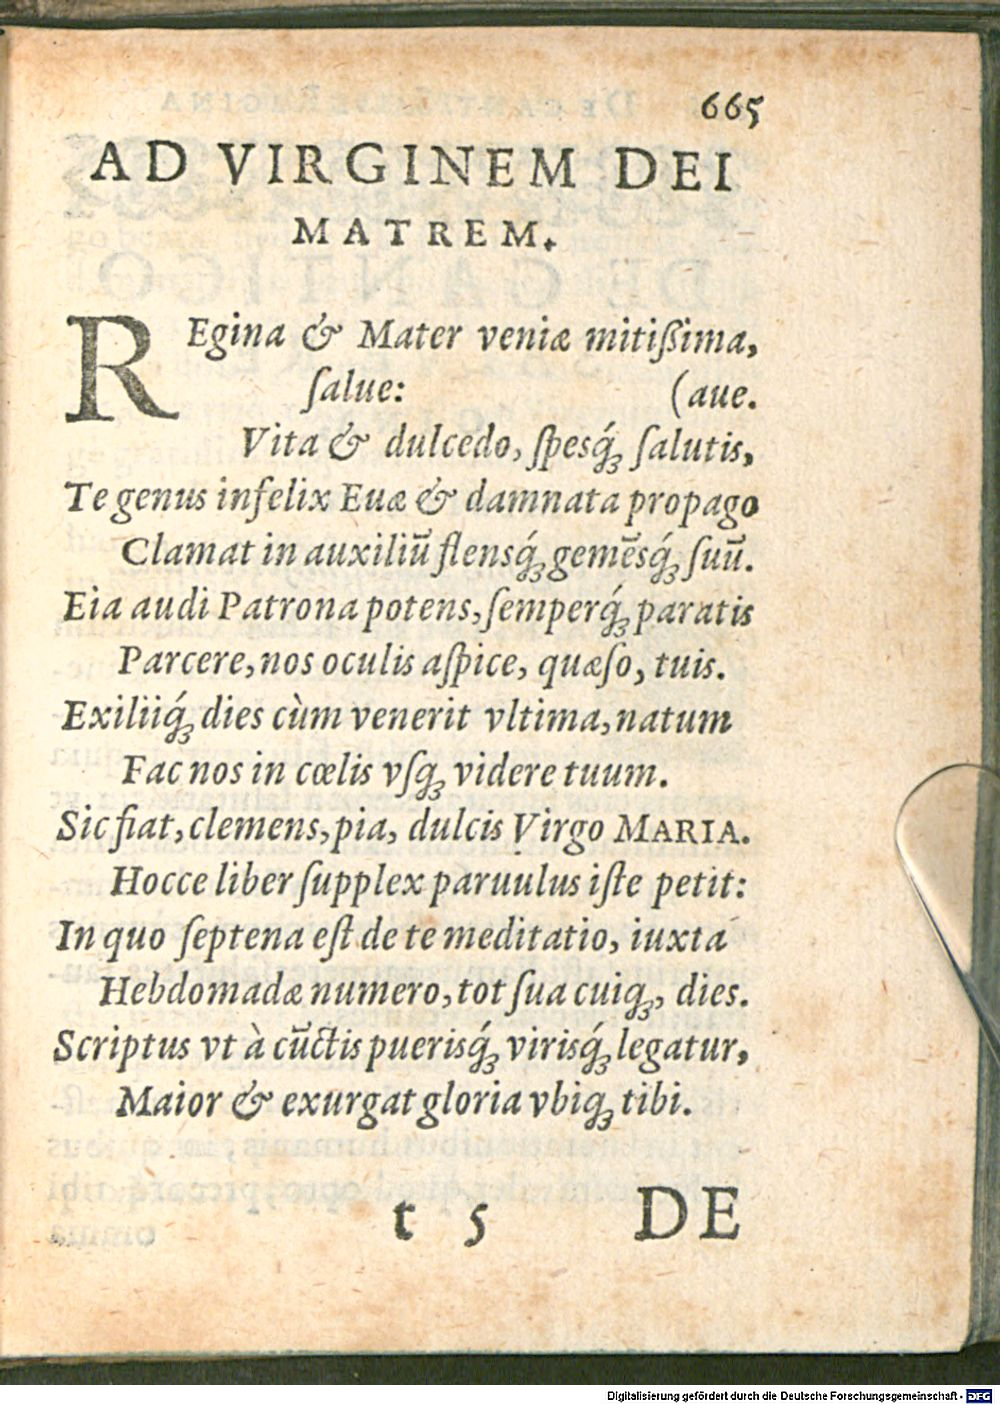 665
AD VIRGINEM DEI
MATREM.
REgina & Mater veniæ mitißima,
ſalue: (aue.
Vita & dulcedo, ſpesq́ꝫ ſalutis,
Te genus infelix Euæ & damnata propago
Clamat in auxiliū flensq́ꝫ gemēsq́ꝫ ſuū.
Eia audi Patrona potens, ſemperq́ꝫ paratis
Parcere, nos oculis aſpice, quæſo, tuis.
Exiliiq́ꝫ dies cùm venerit vltima, natum
Fac nos in cœlis vſqꝫ videre tuum.
Sic fiat, clemens, pia, dulcis Virgo MARIA.
Hocce liber ſupplex paruulus iſte petit:
In quo ſeptena eſt de te meditatio, iuxta
Hebdomadæ numero, tot ſua cuiqꝫ, dies.
Scriptus vt à cūctis puerisq́ꝫ virisq́ꝫ legatur,
Maior & exurgat gloria vbiqꝫ tibi.
t 5 DE
Digitalisierung gefördert durch die Deutsche Forschungsgemeinschaft - DFG